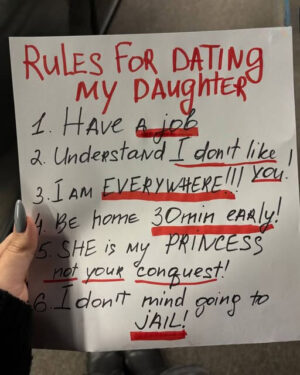 RULES FOR DATING
MY DAUGHTER
1. HAVE a job
2. Understand I don't like
you.
3. I AM EVERYWHERE!!!
4. BE home 30min eARly!
5. SHE is MY PRINCESS
not your conquest!
6. I don't mind going to
JAIL!